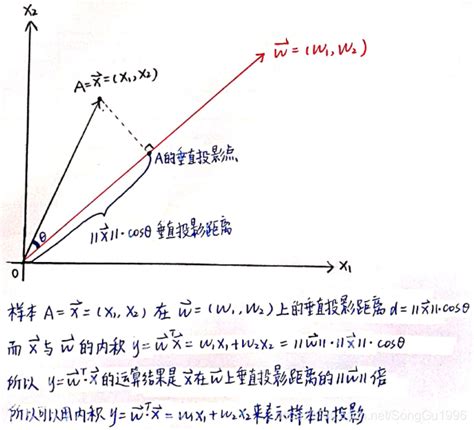 x₂
w⃗=(w₁,w₂)
A=x⃗=(x₁,x₂)
A的垂直投影点
θ
||x⃗||·cosθ 垂直投影距离
0
x₁
样本 A=x⃗=(x₁,x₂) 在 w⃗=(w₁,w₂)上的垂直投影距离 d=||x⃗||·cosθ
而 x⃗ 与 w⃗ 的内积 y=w⃗ᵀx⃗=w₁x₁+w₂x₂=||w⃗||·||x⃗||·cosθ
所以 y=w⃗ᵀ·x⃗ 的运算结果是 x⃗在w⃗上垂直投影距离的||w⃗||倍
所以可以用内积 y=w⃗ᵀ·x⃗=w₁x₁+w₂x₂来表示样本的投影
net/SongGu1996